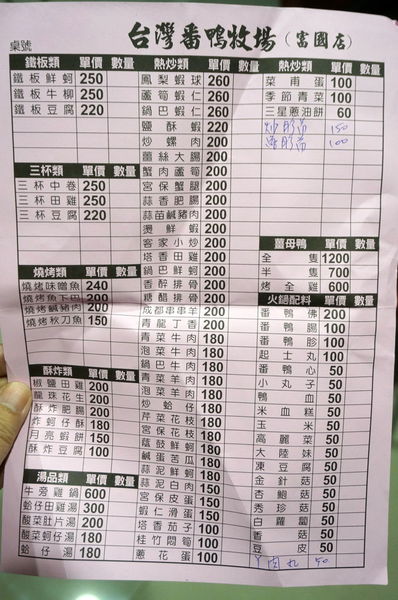 桌號
台灣番鴨牧場(富國店)
鐵板類 單價 數量
鐵板鮮蚵 250
鐵板牛柳 250
鐵板豆腐 220
三杯類 單價 數量
三杯中卷 250
三杯田雞 250
三杯豆腐 220
燒烤類 單價 數量
燒烤味噌魚 240
燒烤魚下巴 200
燒烤鹹豬肉 200
燒烤秋刀魚 150
酥炸類 單價 數量
椒鹽田雞 200
龍珠花生 200
酥炸肥腸 200
炸蚵仔酥 180
月亮蝦餅 150
酥炸豆腐 100
湯品類 單價 數量
牛旁雞鍋 600
蛤仔田雞湯 300
酸菜肚片湯 200
酸菜蚵仔湯 180
蛤仔湯 180
熱炒類 單價 數量
鳳梨蝦球 260
蘆筍蝦仁 260
鍋巴蝦仁 260
鹽酥蝦 220
炒螺肉 200
薑絲大腸 200
蟹肉蘆筍 200
宮保蟹腿 200
蒜香肥腸 200
蒜苗鹹豬肉 200
燙鮮蝦 200
客家小炒 200
塔香田雞 200
鍋巴鮮蚵 200
香醉排骨 200
糖醋排骨 200
成都串串羊 200
青龍丁香 200
青菜牛肉 180
泡菜牛肉 180
鍋巴牛肉 180
青菜羊肉 180
泡菜羊肉 180
炒蛤仔 180
芹菜花枝 180
宮保花枝 180
蔭鼓鮮蚵 180
鹹蛋苦瓜 180
蒜泥鮮蚵 180
蒜泥白肉 150
宮保皮蛋 150
蝦仁滑蛋 150
塔香茄子 100
桂竹悶筍 100
蔥花蛋 100
熱炒類 單價 數量
菜甫蛋 100
季節青菜 100
三星蔥油餅 60
150
100
薑母鴨 單價 數量
全隻 1200
半隻 700
烤全雞 600
火鍋配料 單價 數量
番鴨佛 200
番鴨腸 100
番鴨胗 100
起士丸 100
番鴨心 50
小丸子 50
鴨血 50
米血糕 50
玉米 50
高麗菜 50
大陸妹 50
凍豆腐 50
金針菇 50
杏鮑菇 50
秀珍菇 50
白蘿蔔 50
香菇 50
豆皮 50
丫肉丸 50